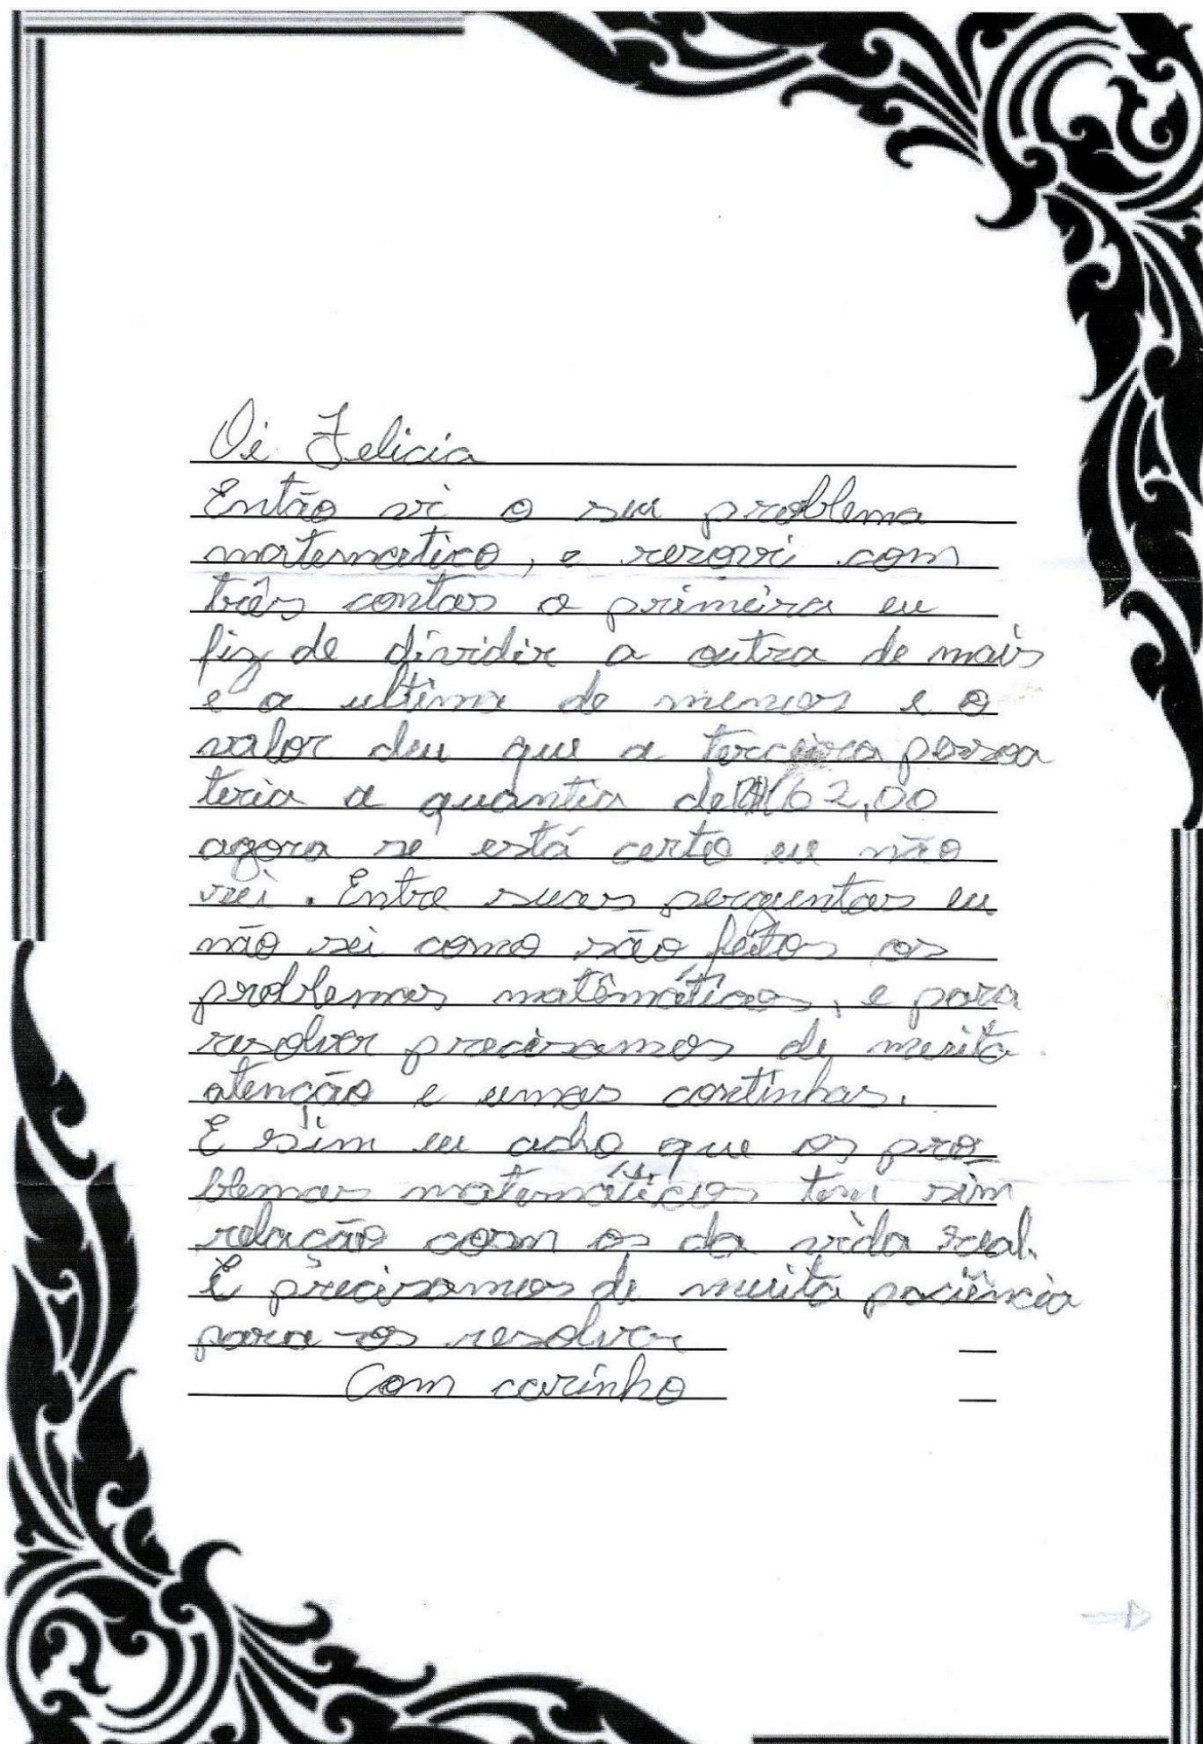 Oi Felicia
Então vi o seu problema
matematico, e rezovri com
três contas a primeira eu
fiz de dividir a outra de mais
e a ultima de menos e o
valor deu que a terceira pessoa
teria a quantia de R$162,00
agora se está certo eu não
sei. Entre suas perguntas eu
não sei como são feitos os
problemas matemáticos, e para
resolver precisamos de muita
atenção e umas continhas.
E sim eu acho que os pro
blemas matemáticos tem sim
relação com os da vida real.
E precisamos de muita paciência
para os resolver
Com carinho